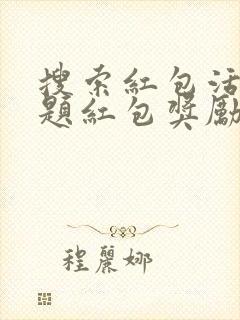 搜索紅包活
題紅包獎勵
程麗娜